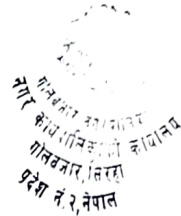 गोलबजार नगरपालिका
नगर कार्यपालिकाको कार्यालय
गोलबजार, सिरहा
प्रदेश नं. २, नेपाल